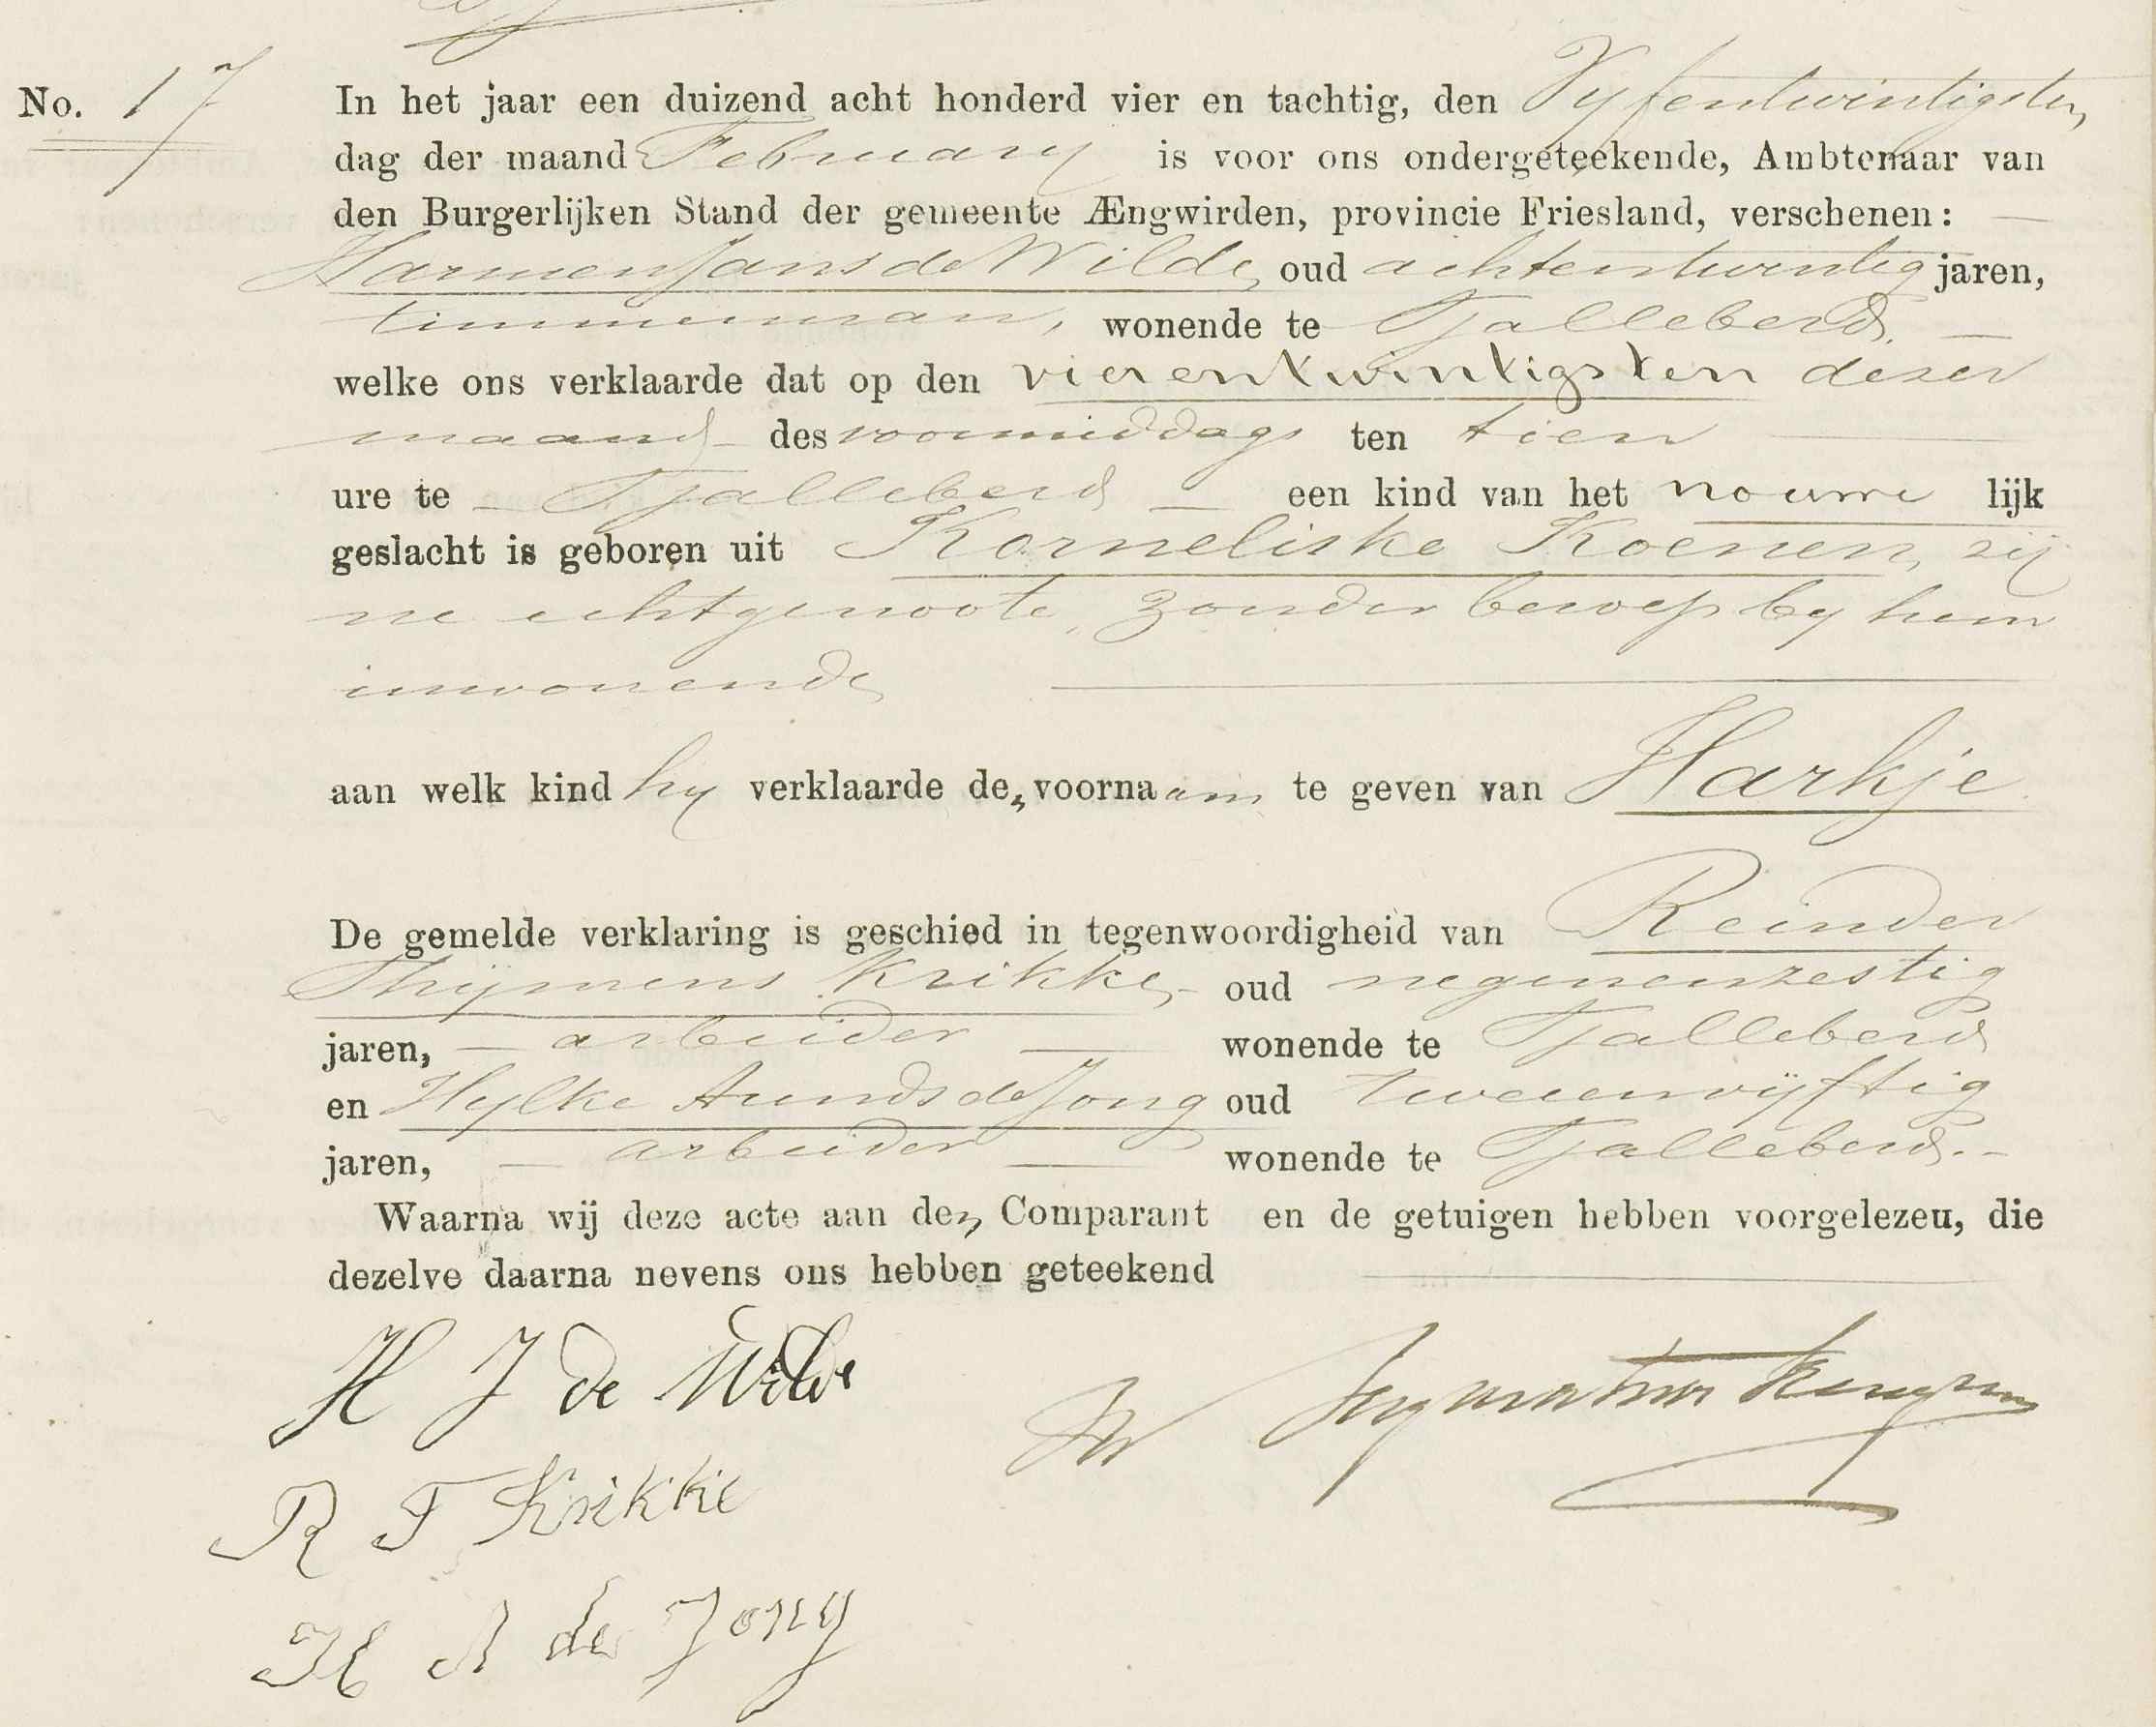 No. 17
In het jaar een duizend acht honderd vier en tachtig, den Vyfentwintigsten
dag der maand February is voor ons ondergeteekende, Ambtenaar van
den Burgerlijken Stand der gemeente Ængwirden, provincie Friesland, verschenen:
Harmen Jans de Wilde, oud achtentwintig jaren,
timmerman, wonende te Tjalleberd.
welke ons verklaarde dat op den vierentwintigsten dezer
maand des voormiddags ten tien
ure te Tjalleberd een kind van het vrouwelijk
geslacht is geboren uit Korneliske Koenen, zij
ne echtgenoote, zonder beroep by hem
inwonende
aan welk kind hy verklaarde den voornaam te geven van Harkje
De gemelde verklaring is geschied in tegenwoordigheid van Reinder
Thijmens Krikke, oud negenenzestig
jaren, arbeider wonende te Tjalleberd
en Hylke Aunds de Jong oud tweeenvijftig
jaren, arbeider wonende te Tjalleberd.
Waarna wij deze acte aan den Comparant en de getuigen hebben voorgelezen, die
dezelve daarna nevens ons hebben geteekend
H J de Wilde
R T Krikke
H A de Jong